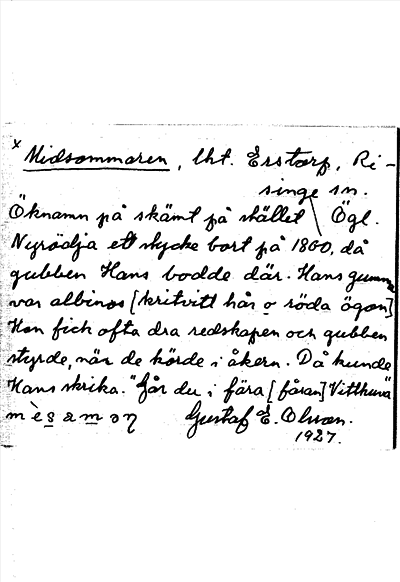 x Midsommaren, lht. Erstorp, Ri-
singe sn.
Öknamn på skämt på stället Ögl.
Nyrödja ett stycke bort på 1800, då
gubben Hans bodde där. Hans gumma
var albinos [kritvitt hår o röda ögon]
Hon fick ofta dra redskapen och gubben
styrde, när de körde i åkern. Då kunde
Hans skrika. "Går du i fåra [fåran] Vitthuva"
Gustaf E. Olson.
1927.